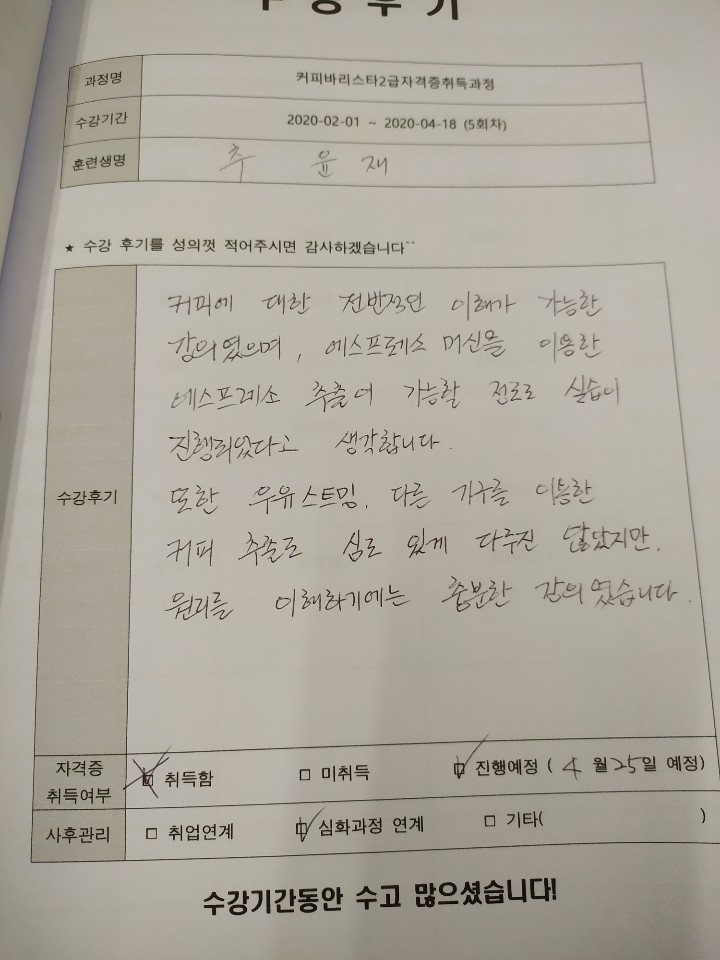 수강후기
과정명 커피바리스타2급자격증취득과정
수강기간 2020-02-01 ~ 2020-04-18 (5회차)
훈련생명 추 윤 재
★ 수강 후기를 성의껏 적어주시면 감사하겠습니다^^
수강후기
커피에 대한 전반적인 이해가 가능한
강의였으며, 에스프레소 머신을 이용한
에스프레소 추출이 가능할 정도로 실습이
진행되었다고 생각합니다.
또한 우유스티밍, 다른 기구를 이용한
커피 추출도 심도 있게 다루진 않았지만,
원리를 이해하기에는 충분한 강의였습니다.
자격증 취득여부 ☑ 취득함 □ 미취득 ☑ 진행예정 ( 4 월 25일 예정)
사후관리 □ 취업연계 ☑ 심화과정 연계 □ 기타( )
수강기간동안 수고 많으셨습니다!